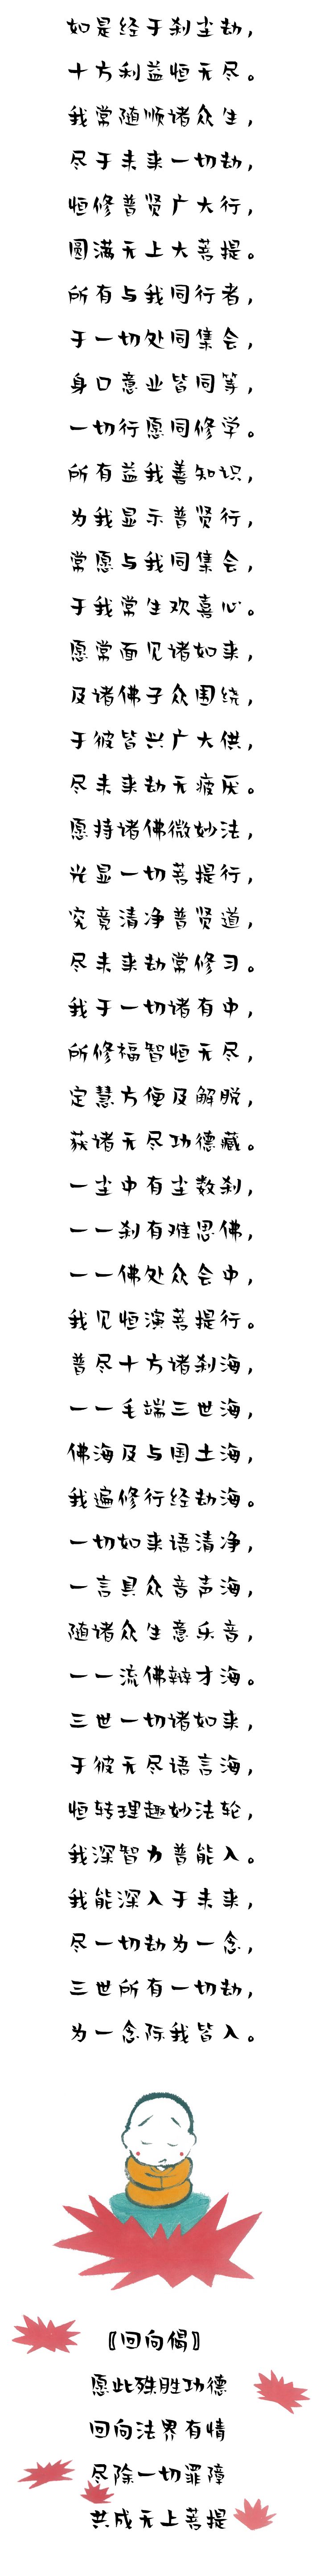 如是经于刹尘劫，
十方利益恒无尽。
我常随顺诸众生，
尽于未来一切劫，
恒修普贤广大行，
圆满无上大菩提。
所有与我同行者，
于一切处同集会，
身口意业皆同等，
一切行愿同修学。
所有益我善知识，
为我显示普贤行，
常愿与我同集会，
于我常生欢喜心。
愿常面见诸如来，
及诸佛子众围绕，
于彼皆兴广大供，
尽未来劫无疲厌。
愿持诸佛微妙法，
光显一切菩提行，
究竟清净普贤道，
尽未来劫常修习。
我于一切诸有中，
所修福智恒无尽，
定慧方便及解脱，
获诸无尽功德藏。
一尘中有尘数刹，
一一刹有难思佛，
一一佛处众会中，
我见恒演菩提行。
普尽十方诸刹海，
一一毛端三世海，
佛海及与国土海，
我遍修行经劫海。
一切如来语清净，
一言具众音声海，
随诸众生意乐音，
一一流佛辩才海。
三世一切诸如来，
于彼无尽语言海，
恒转理趣妙法轮，
我深智力普能入。
我能深入于未来，
尽一切劫为一念，
三世所有一切劫，
为一念际我皆入。
〖回向偈〗
愿此殊胜功德
回向法界有情
尽除一切罪障
共成无上菩提